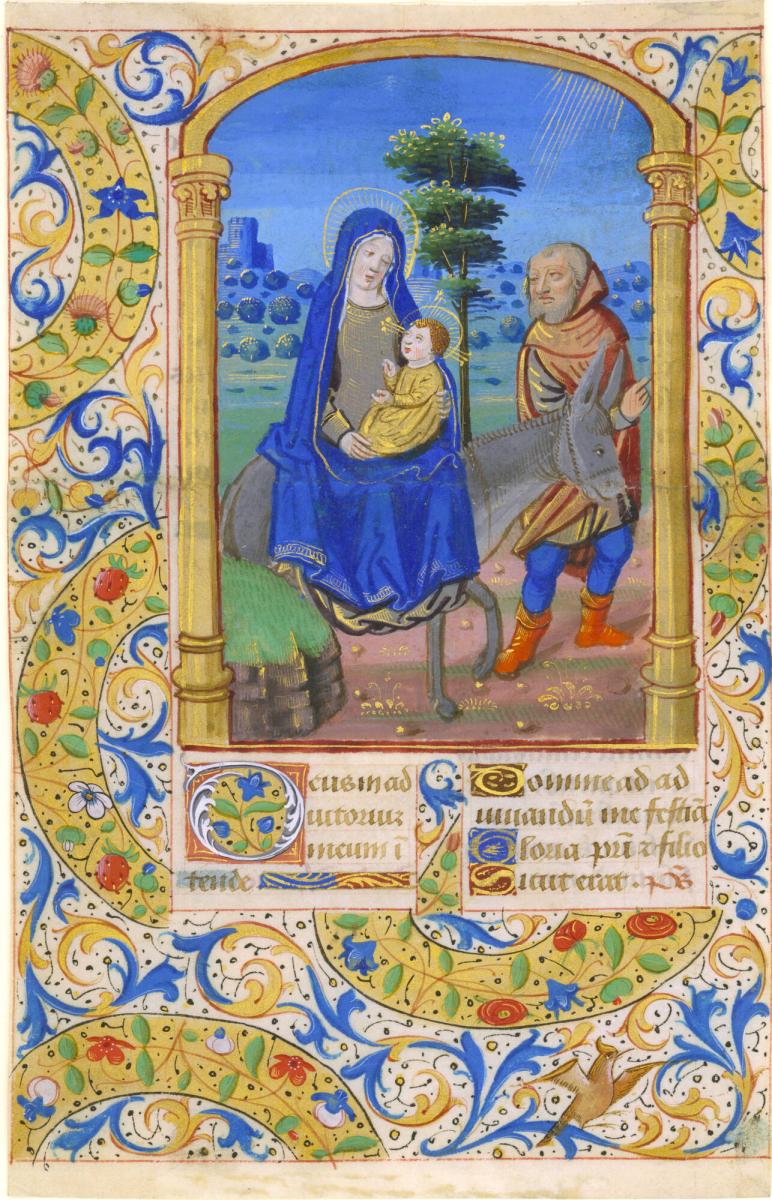 Deus in ad
iutoriuz
meum ī
tende
Domine ad ad
iuuandū me festīa
Gloria pr̄i ⁊ filio
Sicut erat . p̄s